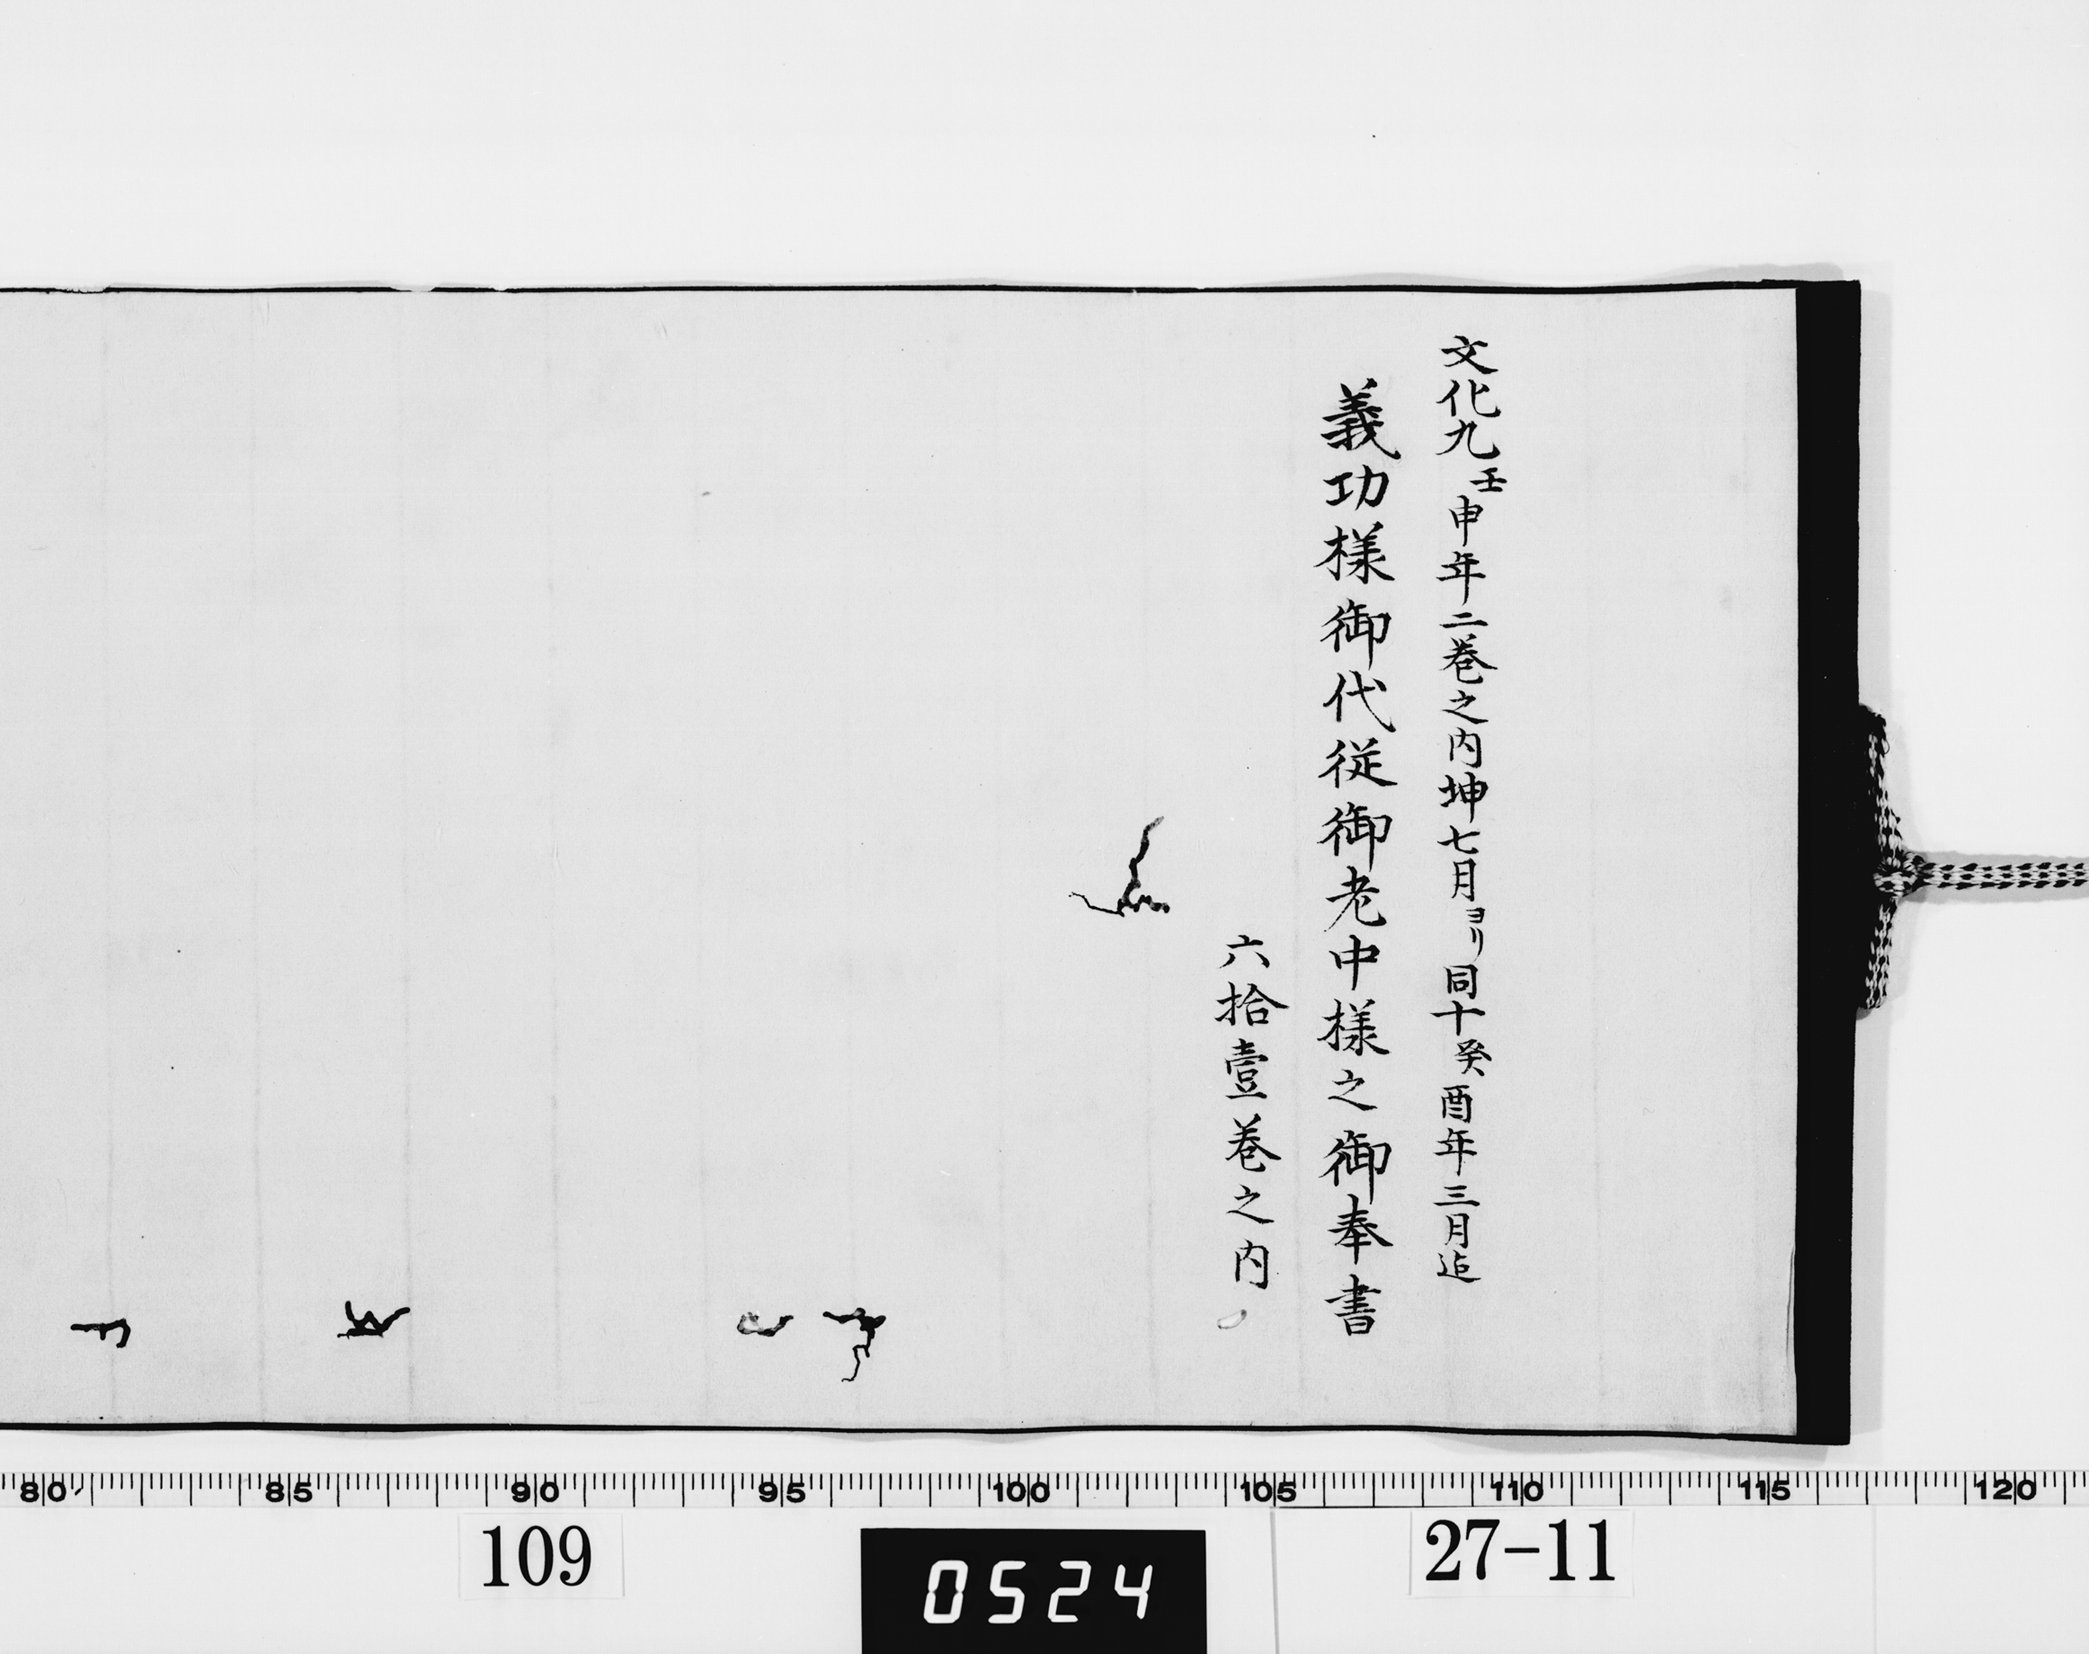 文化九壬申年二巻之内坤七月ヨリ同十癸酉年三月迠
義功様御代従御老中様之御奉書
六拾壹巻之内
80 85 90 95 100 105 110 115 120
109
0524
27-11